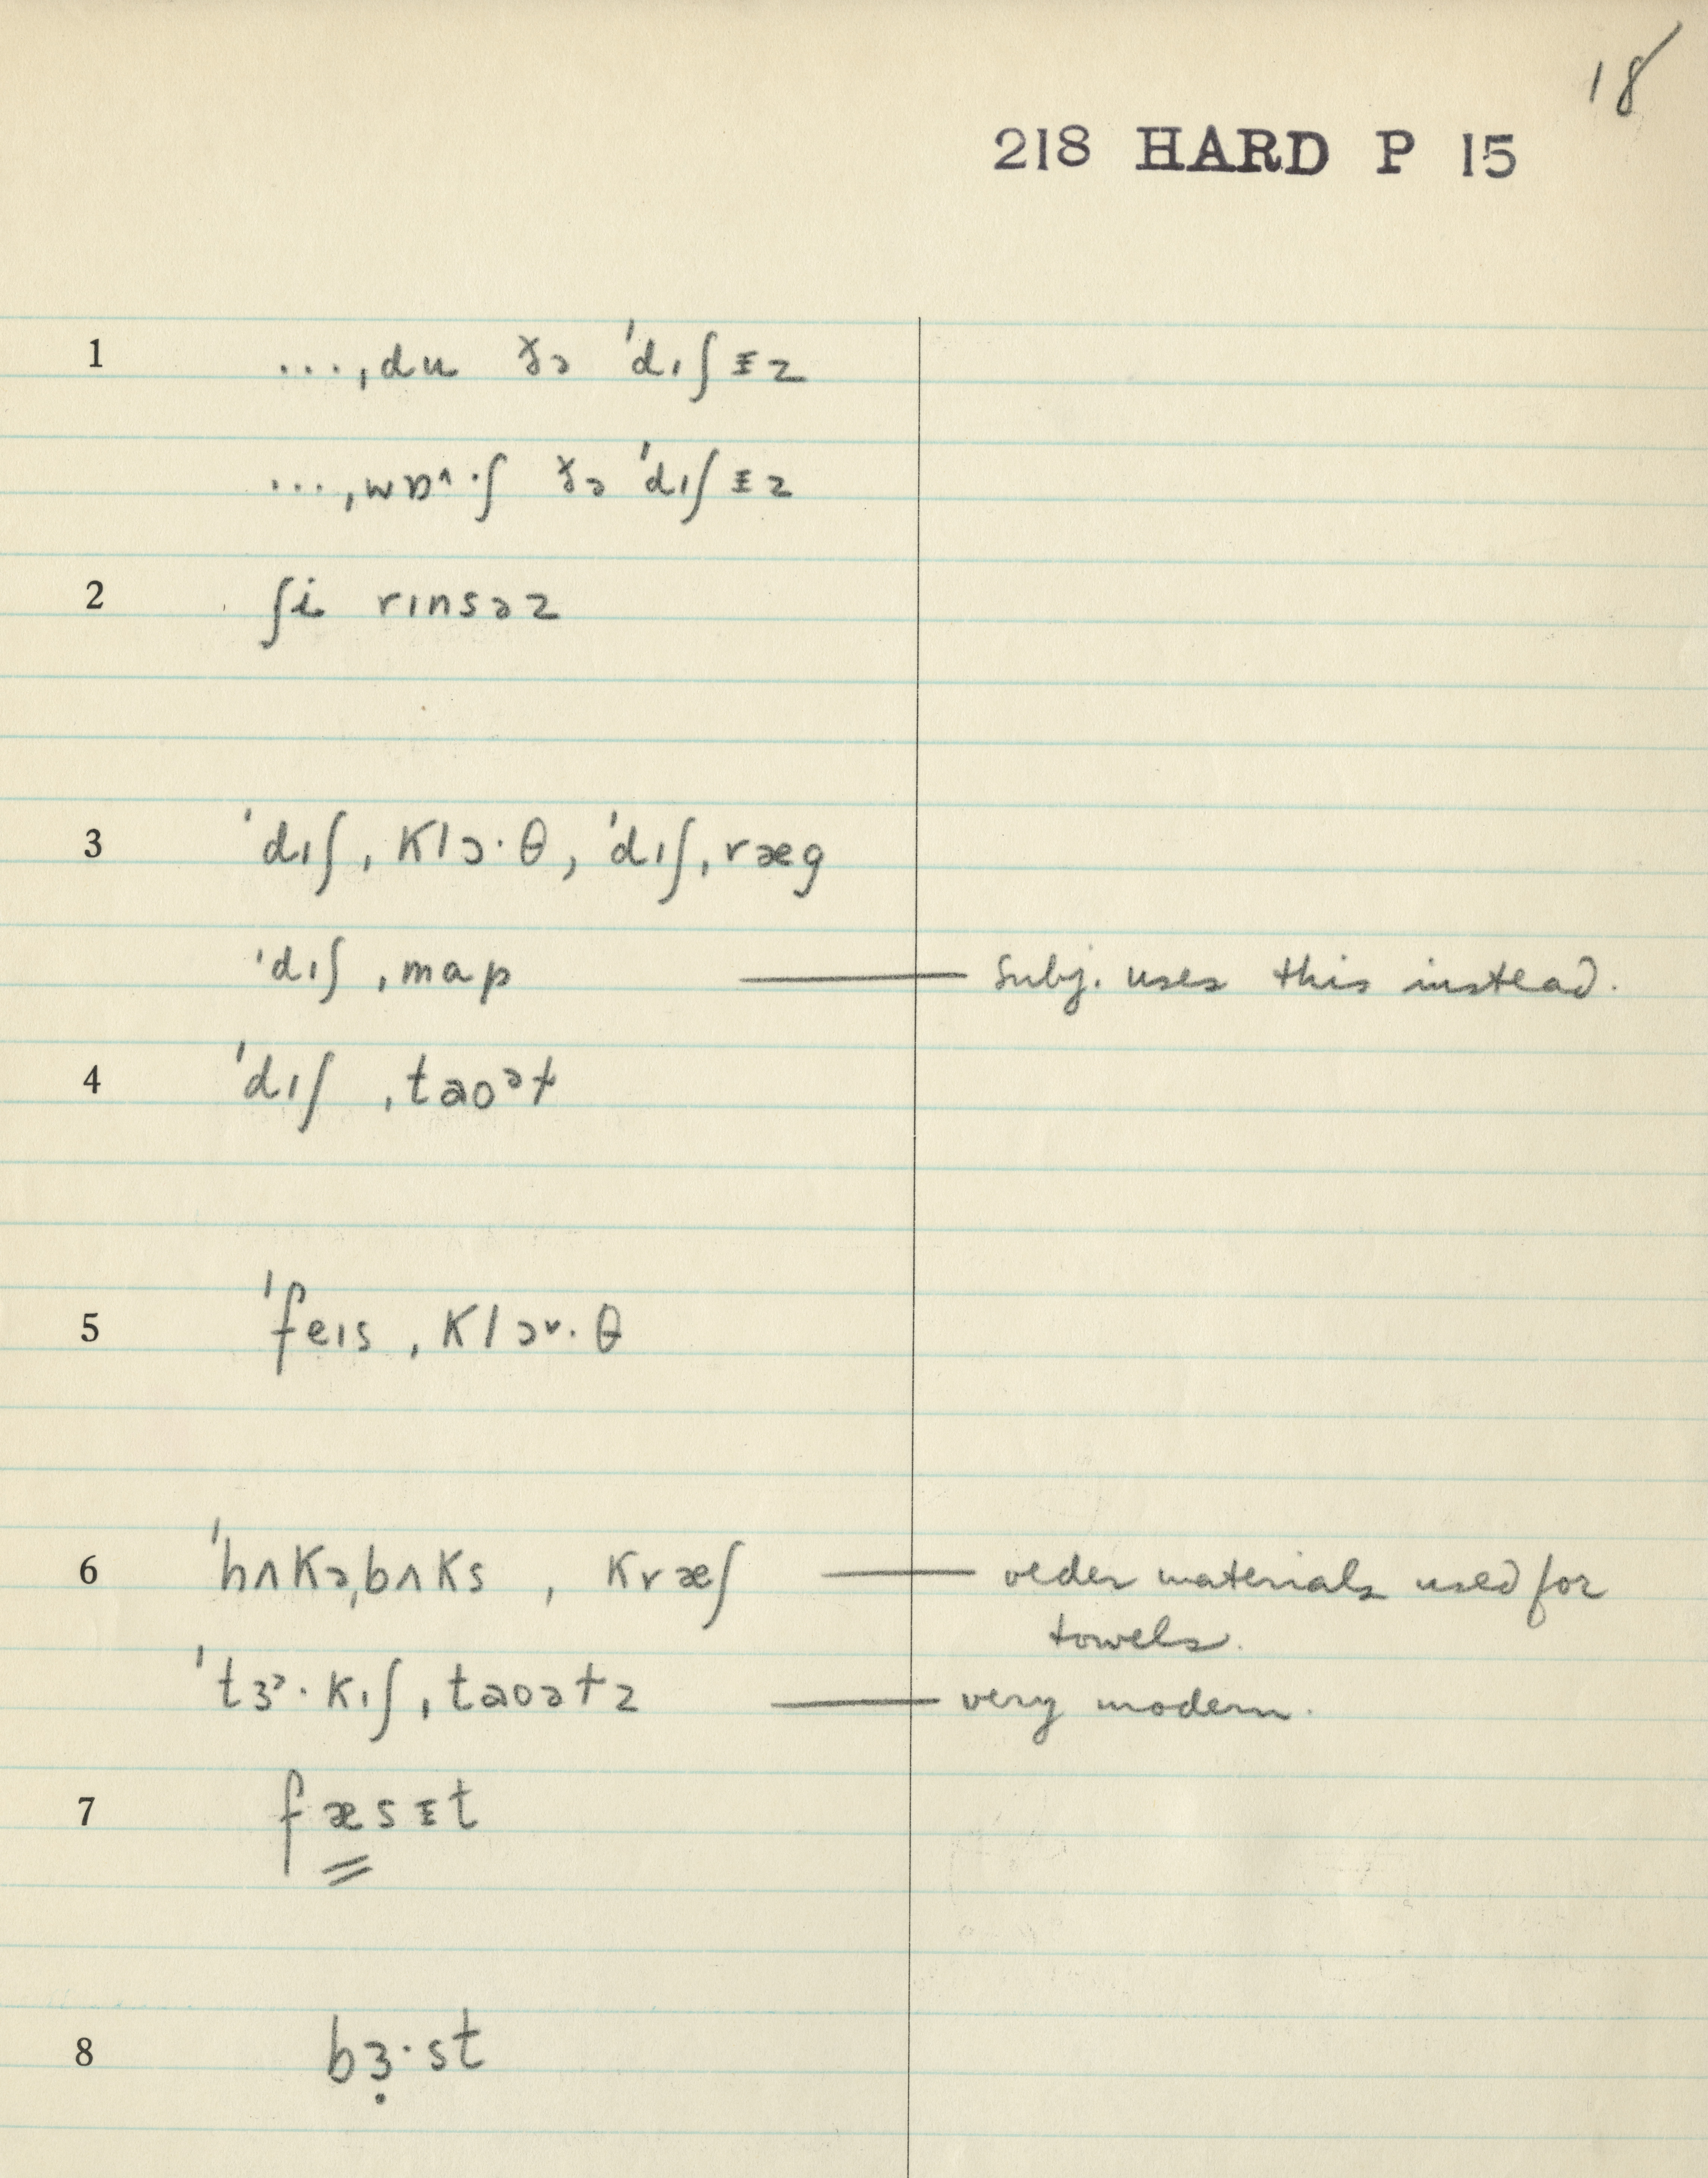 18
218 HARD P 15
1 ...ˌdu ðə ˈdɪʃᵻz
...ˌwɒ^·ʃ ðə ˈdɪʃᵻz
2 ʃi rɪnsəz
3 ˈdɪʃˌklɔ·θ, ˈdɪʃˌræg
ˈdɪʃˌmap — Subj. uses this instead.
4 ˈdɪʃ ˌtaoᵊɫ
5 ˈfeɪsˌklɔ˅·θ
6 ˈhʌkəˌbʌks, kræʃ — older materials used for
towels.
ˈtɜᵊ·kɪʃˌtaoəɫz — very modern.
7 fæsᵻt
8 bɜ̣·st